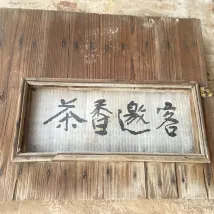 茶香邀客